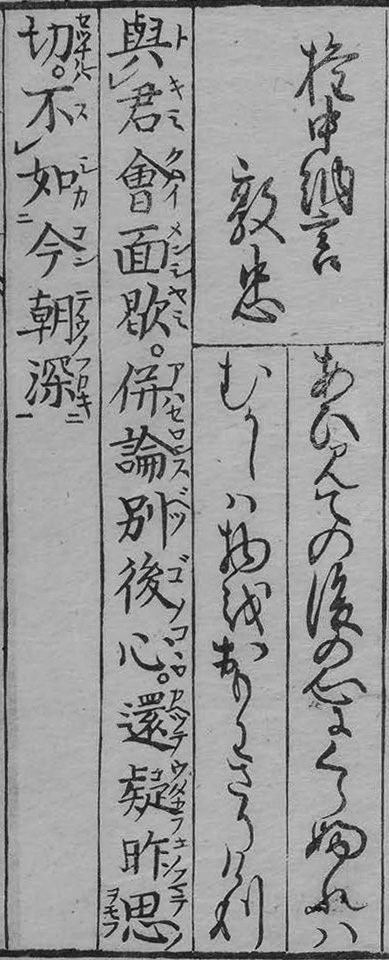 権中納言
敦忠
あひ見ての後の心にくらふれハ
むかしハ物をおもハさりけり
與レ君會面歇。併論別後心。還疑昨思
切。不レ如二今朝深一